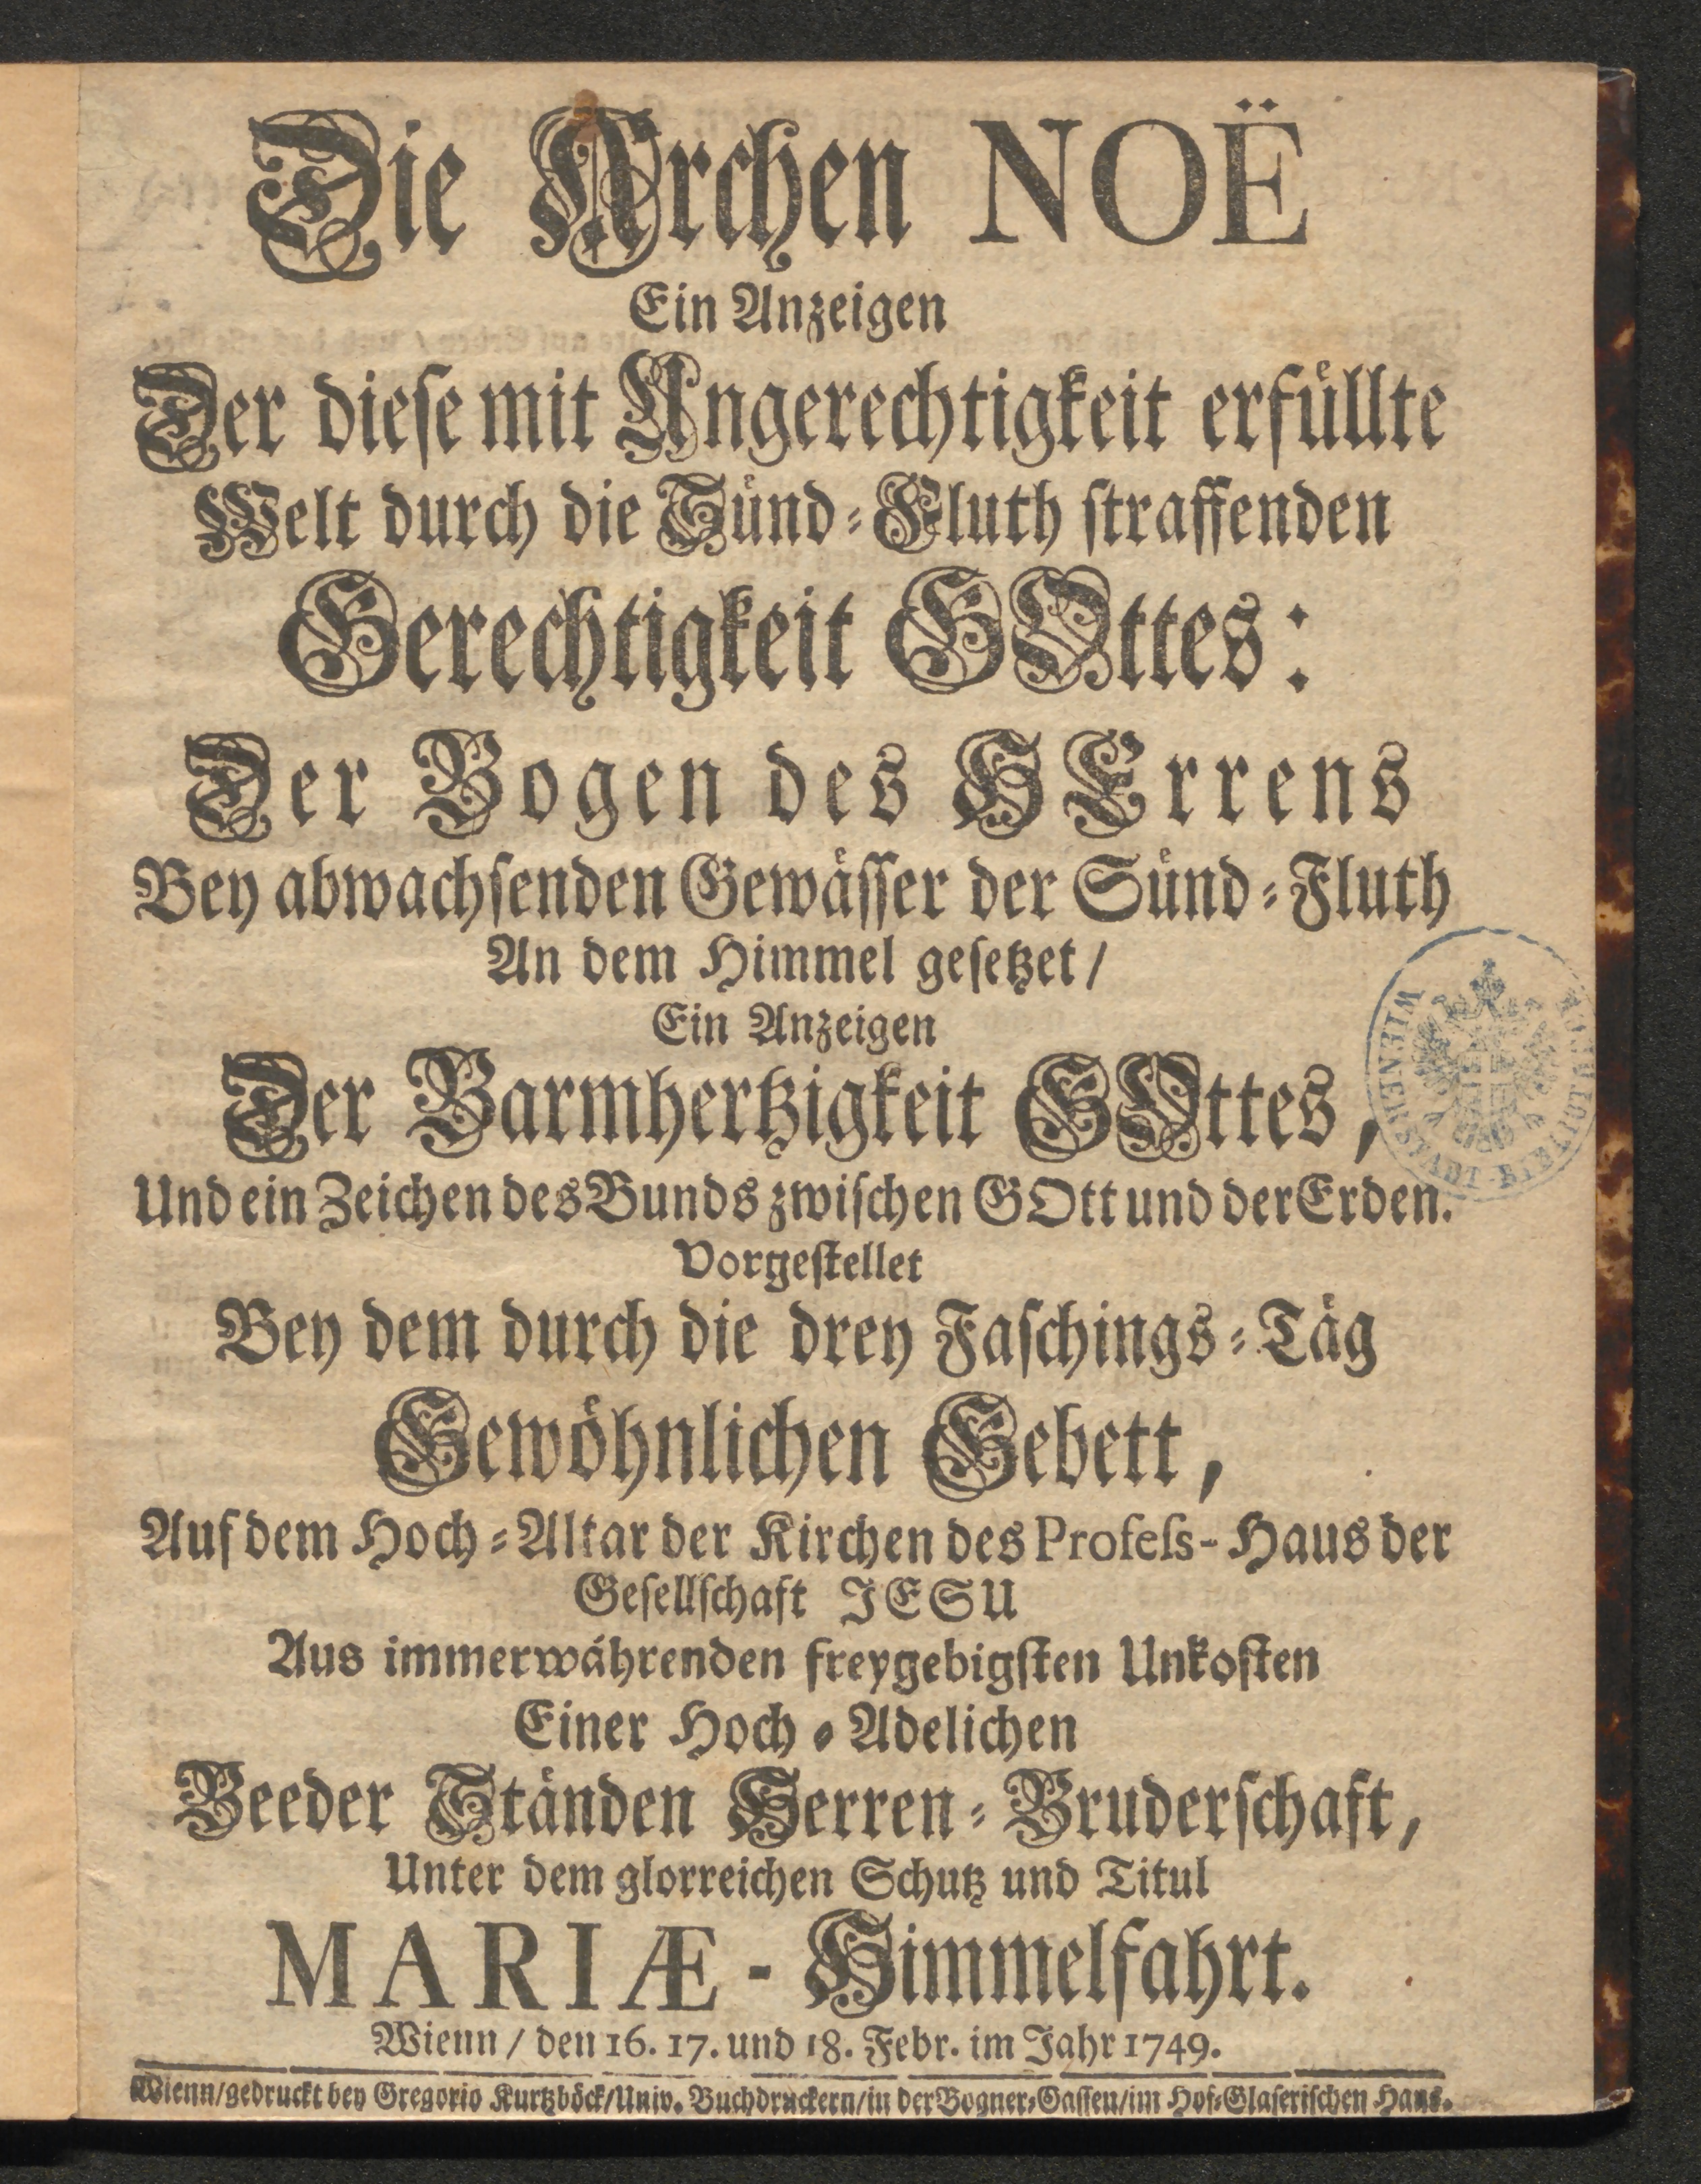 Die Archen NOË
Ein Anzeigen
Der diese mit Ungerechtigkeit erfüllte
Welt durch die Sünd-Fluth straffenden
Gerechtigkeit GOttes:
Der Bogen des HErrens
Bey abwachsenden Gewässer der Sünd-Fluth
An dem Himmel gesetzet/
Ein Anzeigen
Der Barmhertzigkeit GOttes,
Und ein Zeichen des Bunds zwischen GOtt und der Erden.
Vorgestellet
Bey dem durch die drey Faschings-Täg
Gewöhnlichen Gebett,
Auf dem Hoch-Altar der Kirchen des Profess-Haus der
Gesellschaft JESU
Aus immerwährenden freygebigsten Unkosten
Einer Hoch-Adelichen
Beeder Ständen Herren-Bruderschaft,
Unter dem glorreichen Schutz und Titul
MARIÆ-Himmelfahrt.
Wienn/ den 16. 17. und 18. Febr. im Jahr 1749.
Wienn/gedruckt bey Gregorio Kurtzböck/Univ. Buchdruckern/in der Bogner-Gassen/im Hof-Glaserischen Haus.
WIENER STADT-BIBLIOTHEK